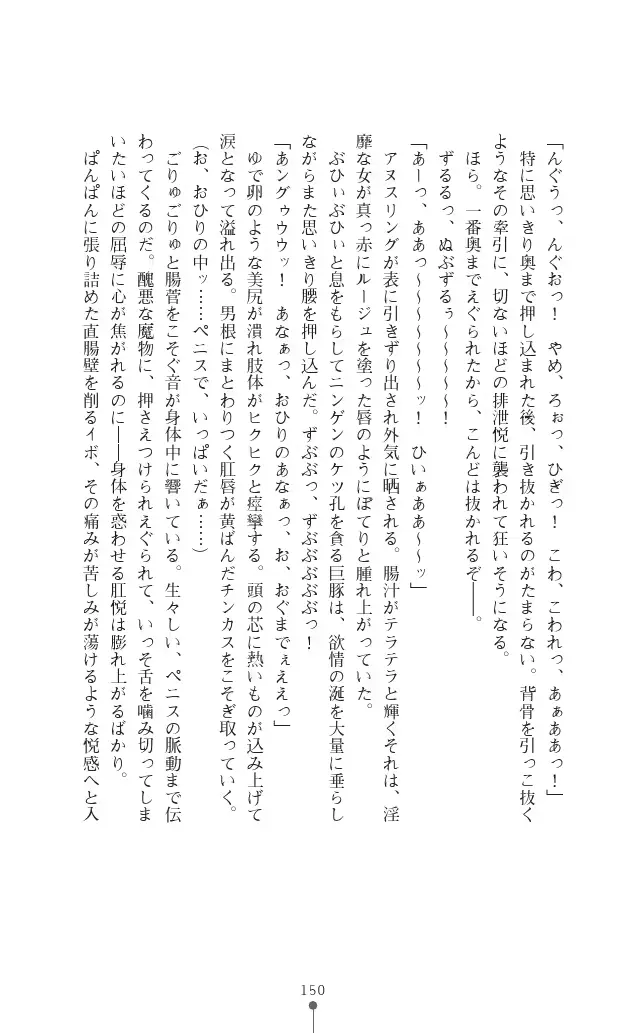 「んぐうっ、んぐおっ！　やめ、ろぉっ、ひぎっ！　こわ、こわれっ、あぁああっ！」
　特に思いきり奥まで押し込まれた後、引き抜かれるのがたまらない。背骨を引っこ抜く
ようなその牽引に、切ないほどの排泄悦に襲われて狂いそうになる。
　ほら。一番奥までえぐられたから、こんどは抜かれるぞ――。
　ずるるっ、ぬぶずるぅ～～～～～！
「あーっ、ああっ～～～～～～ッ！　ひいぁああ～～ッ」
　アヌスリングが表に引きずり出され外気に晒される。腸汁がテラテラと輝くそれは、淫
靡な女が真っ赤にルージュを塗った唇のようにぽてりと腫れ上がっていた。
　ぶひぃぶひぃと息をもらしてニンゲンのケツ孔を貪る巨豚は、欲情の涎を大量に垂らし
ながらまた思いきり腰を押し込んだ。ずぶぶっ、ずぶぶぶぶぶっ！
「あングゥウウッ！　あなぁっ、おひりのあなぁっ、お、おぐまでぇええっ」
　ゆで卵のような美尻が潰れ肢体がヒクヒクと痙攣する。頭の芯に熱いものが込み上げて
涙となって溢れ出る。男根にまとわりつく肛唇が黄ばんだチンカスをこそぎ取っていく。
（お、おひりの中ッ……ペニスで、いっぱいだぁ……）
　ごりゅごりゅと腸菅をこそぐ音が身体中に響いている。生々しい、ペニスの脈動まで伝
わってくるのだ。醜悪な魔物に、押さえつけられえぐられて、いっそ舌を噛み切ってしま
いたいほどの屈辱に心が焦がれるのに――身体を惑わせる肛悦は膨れ上がるばかり。
　ぱんぱんに張り詰めた直腸壁を削るイボ、その痛みが苦しみが蕩けるような悦感へと入
150